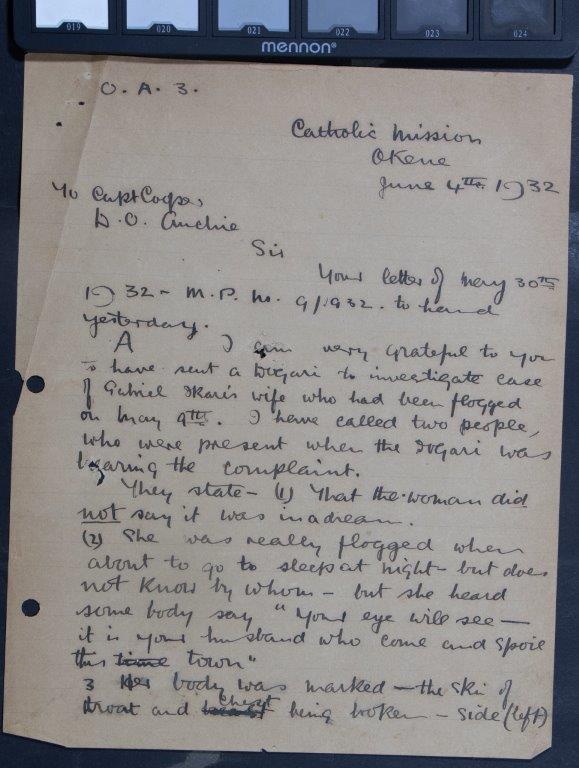 019 020 021 022 023 024
mennon®
O. A. 3.
Catholic Mission
Okene
June 4th. 1932
To Capt Cooper
D. O. Auchie
Sir
Your letter of May 30th
1932 - M.P. No. 9/1932. to hand
yesterday.
A I am very grateful to you
to have sent a Dogari to investigate case
of Gabriel Ikari's wife who had been flogged
on May 9th. I have called two people,
who were present when the Dogari was
hearing the complaint.
They state - (1) That the woman did
not say it was in a dream.
(2) She was really flogged when
about to go to sleep at night - but does
not know by whom - but she heard
some body say "Your eye will see -
it is your husband who come and spoil
this time town"
3 Her body was marked - the skin of
throat and chest being broken - side (left)